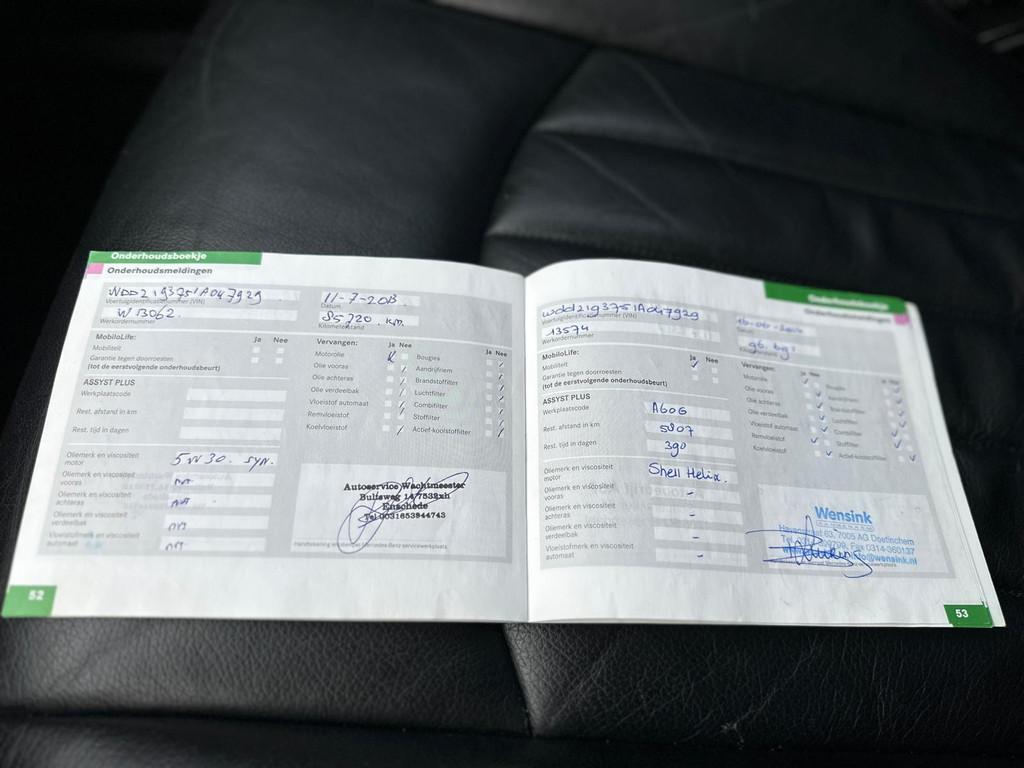 Onderhoudsboekje
Onderhoudsmeldingen
WDD2193751A047929
Voertuigidentificatienummer (VIN)
W13062.
Werkordernummer
11-7-2013
Datum
85720 . km.
Kilometerstand
MobiloLife: Ja Nee
Mobiliteit
Garantie tegen doorroesten
(tot de eerstvolgende onderhoudsbeurt)
ASSYST PLUS
Werkplaatscode
Rest. afstand in km
Rest. tijd in dagen
Vervangen: Ja Nee Ja Nee
Motorolie Bougies
Olie vooras Aandrijfriem
Olie achteras Brandstoffilter
Olie verdeelbak Luchtfilter
Vloeistof automaat Combifilter
Remvloeistof Stoffilter
Koelvloeistof Actief-koolstoffilter
Oliemerk en viscositeit
motor
5W30. syn.
Oliemerk en viscositeit
vooras
Oliemerk en viscositeit
achteras
Oliemerk en viscositeit
verdeelbak
Vloeistofmerk en viscositeit
automaat
Autoservice Wachtmeester
Bultsweg 14/7532xh
Enschede
Tel 0031653944743
52
Onderhoudsboekje
Onderhoudsmeldingen
wdd2193751A047929
Voertuigidentificatienummer (VIN)
13574
Werkordernummer
MobiloLife: Ja Nee
Mobiliteit
Garantie tegen doorroesten
(tot de eerstvolgende onderhoudsbeurt)
ASSYST PLUS
Werkplaatscode A606
Rest. afstand in km 5807
Rest. tijd in dagen 390
Vervangen: Ja Nee
Motorolie Bougies
Olie vooras Aandrijfriem
Olie achteras Brandstoffilter
Olie verdeelbak Luchtfilter
Vloeistof automaat Combifilter
Remvloeistof Stoffilter
Koelvloeistof Actief-koolstoffilter
Oliemerk en viscositeit
motor
Shell Helix.
Oliemerk en viscositeit
vooras -
Oliemerk en viscositeit
achteras -
Oliemerk en viscositeit
verdeelbak -
Vloeistofmerk en viscositeit
automaat -
Wensink
63, 7005 AG Doetinchem
Fax 0314-360137
@wensink.nl
53